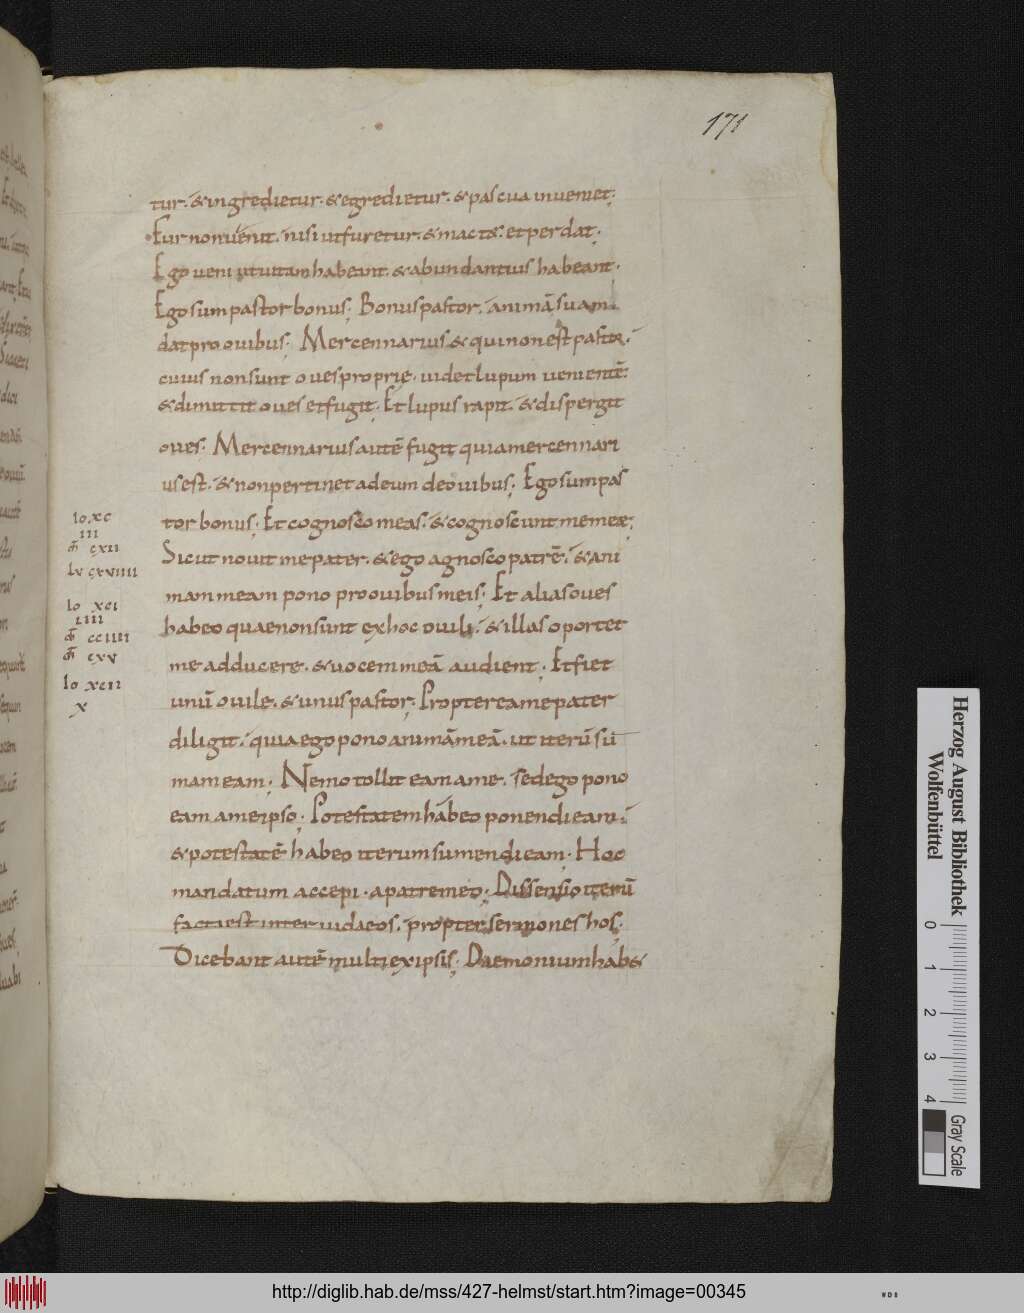 171
tur. & ingredietur. & egredietur. & pascua inveniet;
Fur non venit. nisi ut furetur. & mact&. et perdat.
Ego veni ut vitam habeant. & abundantius habeant.
Ego sum pastor bonus; Bonus pastor. animā suam
dat pro ovibus; Mercennarius. & qui non est pastor.
cuius non sunt oves proprie. videt lupum venientē.
& dimittit oves et fugit. Et lupus rapit. & dispergit
oves. Mercennarius autē fugit quia mercennari
us est. & non pertinet ad eum de ovibus; Ego sum pas
tor bonus; Et cognosco meas. & cognoscunt me meae;
Sicut novit me pater. & ego agnosco patrē. & ani
mam meam pono pro ovibus meis; Et alias oves
habeo quae non sunt ex hoc ovili. & illas oportet
me adducere. & vocem meā audient. Et fiet
unū ovile. & unus pastor; Propterea me pater
diligit. quia ego pono animā meā. ut iterū sū
mam eam; Nemo tollit eam a me. sed ego pono
eam a me ipso; Potestatem habeo ponendi eam.
& potestatē habeo iterum sumendi eam. Hoc
mandatum accepi. a patre meo; Dissensio iterū
facta est inter iudaeos. propter sermones hos;
Dicebant autē multi ex ipsis; Daemonium hab&
Io. xc
III
cxii
Lv cxviiii
Io xci
IIII
cciiii
cxv
Io xcii
x
Herzog August Bibliothek
Wolfenbüttel
0 1 2 3 4
Gray Scale
http://diglib.hab.de/mss/427-helmst/start.htm?image=00345